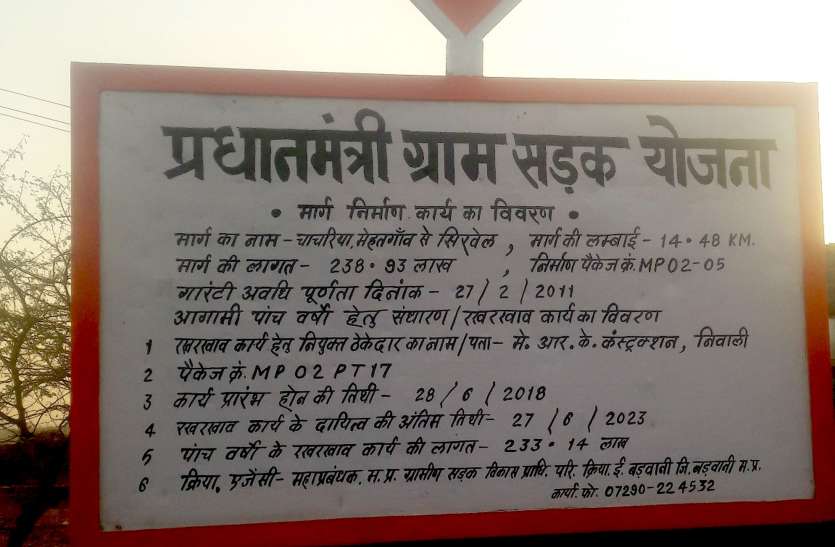 प्रधानमंत्री ग्राम सड़क योजना
• मार्ग निर्माण कार्य का विवरण •
मार्ग का नाम - चाचरिया, मेहतगाँव से सिरवेल , मार्ग की लम्बाई - 14•48 KM.
मार्ग की लागत - 238•93 लाख , निर्माण पैकेज क्रं. MP02-05
गारंटी अवधि पूर्णता दिनांक - 27/2/2011
आगामी पांच वर्षो हेतु संधारण/रखरखाव कार्य का विवरण
1 रखरखाव कार्य हेतु नियुक्त ठेकेदार का नाम/पता - मे. आर. के. कंस्ट्रक्शन, निवाली
2 पैकेज क्रं. MP 02 PT 17
3 कार्य प्रारंभ होन की तिथी - 28/6/2018
4 रखरखाव कार्य के दायित्व की अंतिम तिथी - 27/6/2023
5 पांच वर्षो के रखरखाव कार्य की लागत - 233•14 लाख
6 क्रिया. एजेंसी - महाप्रबंधक, म.प्र. ग्रामीण सड़क विकास प्राधि. परि. क्रिया. ई. बड़वानी जि. बड़वानी म.प्र.
कार्या. फो. 07290-224532